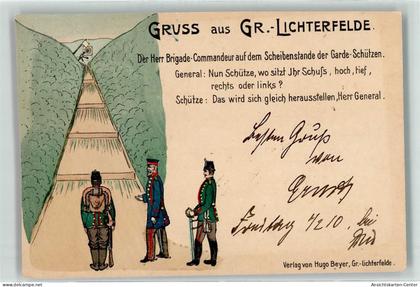 GRUSS AUS GR.-LICHTERFELDE.
Der Herr Brigade-Commandeur auf dem Scheibenstande der Garde-Schützen.
General: Nun Schütze, wo sitzt Jhr Schuſs, hoch, tief,
rechts oder links?
Schütze: Das wird sich gleich herausstellen, Herr General.
Besten Gruß
von
Ernst
Verlag von Hugo Beyer, Gr.-Lichterfelde.
www.ansichtskarten-center.de
Ansichtskarten-Center.de